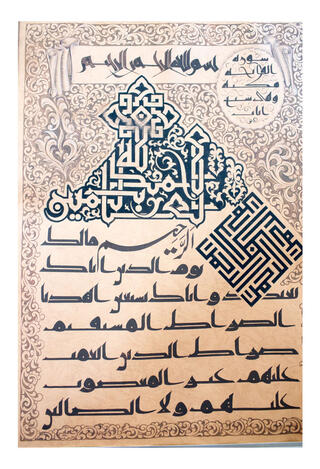 بسم الله الرحمن الرحيم
سورة
الفاتحة
مكية
وهي سبع
آيات
الحمد لله
رب العالمين
الرحيم مالك
يوم الدين اياك
نعبد و اياك نستعين اهدنا
الصراط المستقيم
صراط الذين انعمت
عليهم غير المغضوب
عليهم ولا الضالين